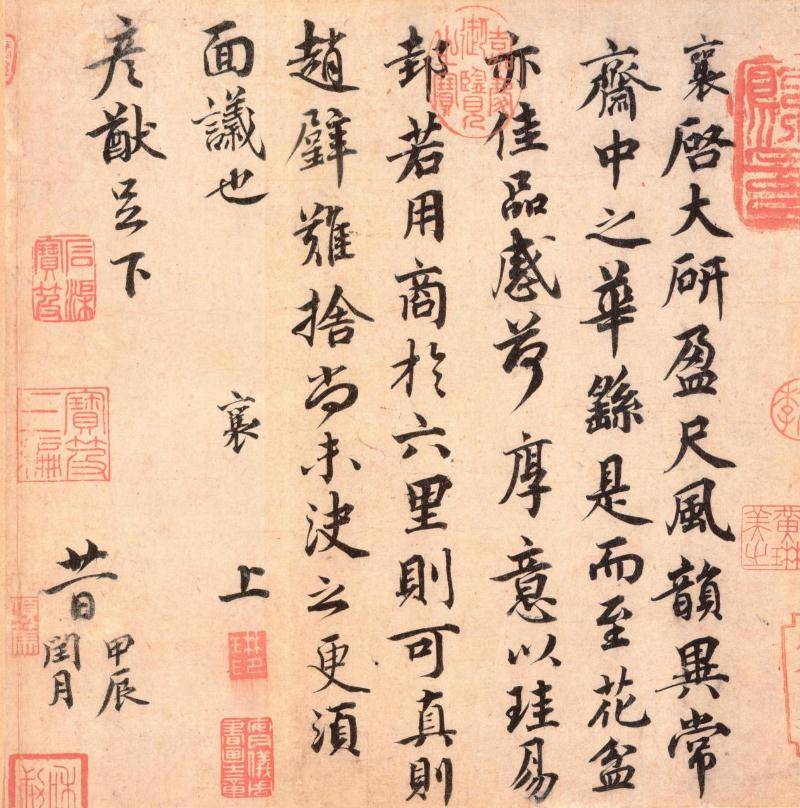 襄啓大研盈尺風韻異常
齋中之華繇是而至花盆
亦佳品感荷厚意以珪易
邽若用商於六里則可真則
趙璧難捨尚未決之更須
面議也
襄上
彦猷足下
廿一日
甲辰
閏月